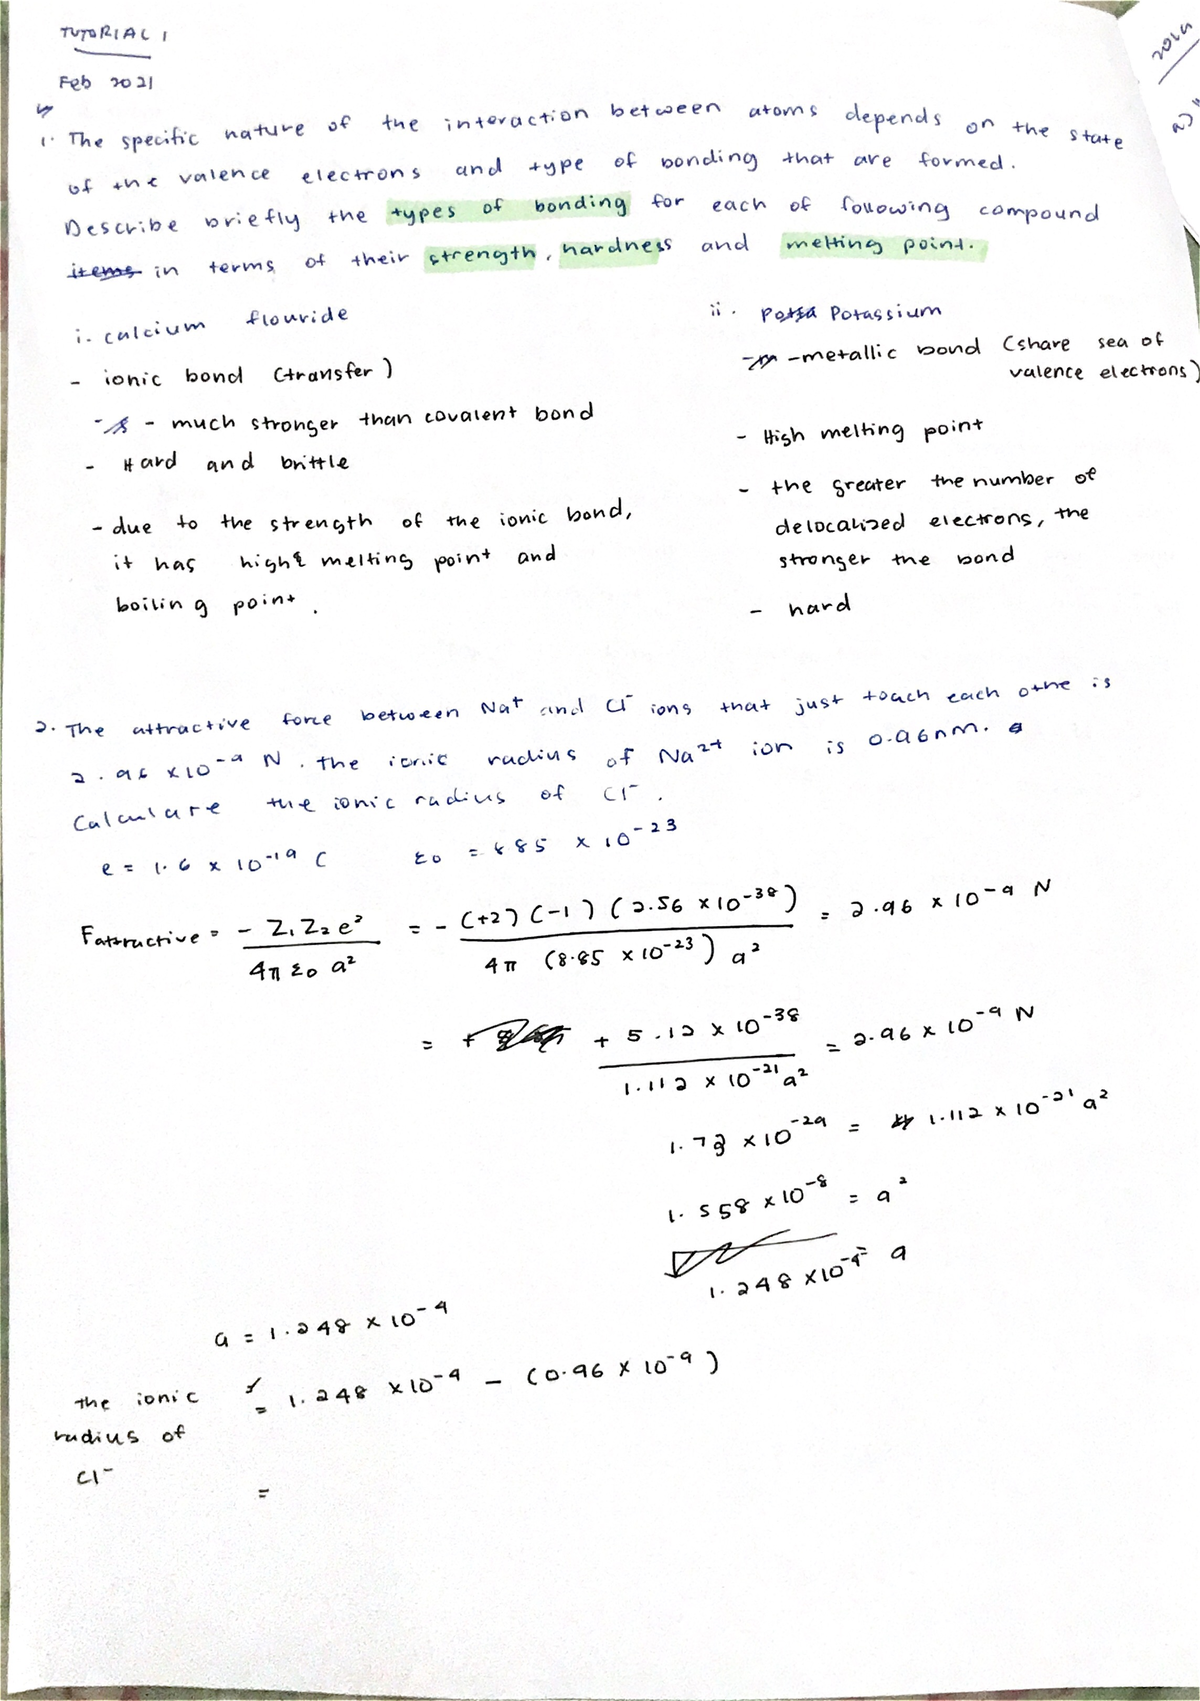 TUTORIAL 1
2019
Feb 2021
1. The specific nature of the interaction between atoms depends on the state
of the valence electrons and type of bonding that are formed.
Describe briefly the types of bonding for each of following compound
items in terms of their strength, hardness and melting point.
i. calcium flouride
- ionic bond (transfer)
- much stronger than covalent bond
- Hard and brittle
- due to the strength of the ionic bond,
it has high melting point and
boiling point.
ii. Potassium
- metallic bond (share sea of
valence electrons)
- High melting point
- the greater the number of
delocalized electrons, the
stronger the bond
- hard
2. The attractive force between Na⁺ and Cl⁻ ions that just touch each othe is
2.96 x 10⁻⁹ N. the ionic radius of Na²⁺ ion is 0.96nm.
Calculare the ionic radius of Cl⁻.
e = 1.6 x 10⁻¹⁹ C ε0 = 8.85 x 10⁻²³
Fattractive = - Z₁Z₂e² / 4π ε0 a² = - (+2)(-1)(2.56 x 10⁻³⁸) / 4π (8.85 x 10⁻²³) a² = 2.96 x 10⁻⁹ N
= + 5.12 x 10⁻³⁸ / 1.112 x 10⁻²¹ a² = 2.96 x 10⁻⁹ N
1.73 x 10⁻²⁹ = 1.112 x 10⁻²¹ a²
1.558 x 10⁻⁸ = a²
1.248 x 10⁻⁴ = a
a = 1.248 x 10⁻⁴
the ionic radius of Cl⁻ = 1.248 x 10⁻⁴ - (0.96 x 10⁻⁹)
=